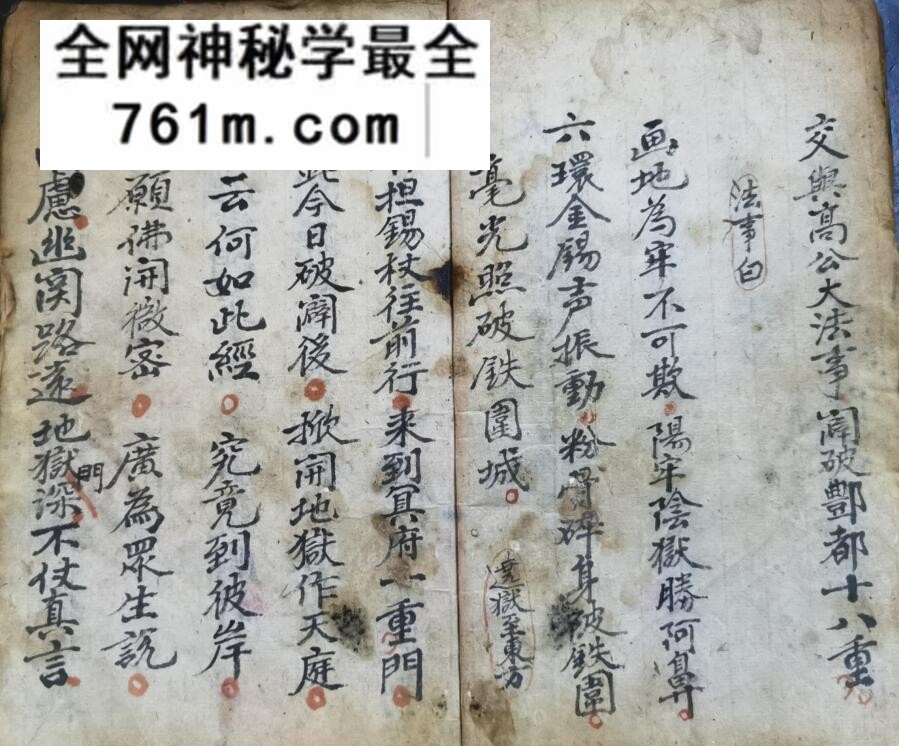 全网神秘学最全
761m.com
交與高公大法事闹破酆都十八重
法事白
画地為牢不可欺陽牢陰獄勝阿鼻
六環金錫声振動粉骨碎身被鉄圍
毫光照破鉄圍城
遶獄至東方
担錫杖往前行来到冥府一重門
今日破闹後掀開地獄作天庭
云何如此經究竟到彼岸
願佛開微密廣為眾生説
慮幽関路遠地獄門深不仗真言